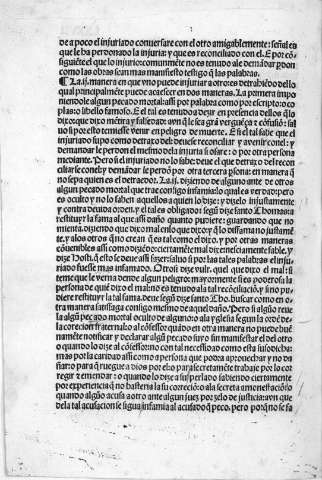 de a poco el injuriado conuersase con el otro amigablemente: señal es
que le ha perdonado la injuria: y que es reconciliado con el. E por cõ-
siguiẽte el que lo injurio: comunmẽte no es tenuto a le demãdar pdon
como las obras sean mas manifesto testigo q̃ las palabras.
¶ La .ij. manera en que vno puede injuriar a otro es detrabiẽdo dello
qual principalmẽte puede acaescer en dos maneras. La primera impo
niendole algun pecado mortal: assi por palabra como por escripto: o co
plas: o libello famoso. E el tal es tenudo a dezir en presencia dellos q̃ lo
dixo: que dixo mẽtira y falsedad: avn q̃ le sea grã verguẽça e cõfusiõ: sal
uo si por esto temiesse venir en peligro de muerte. E si el tal sabe que el
injuriado supo como detraxo del: deuese reconciliar y auenir conel: y
demandar le perdon del mesmo dela injuria
mediante. Pero si el injuriado no lo sabe: deue el que detraxo del recon
ciliarse conel y demandar le perdõ por otra tercera psona: en manera q̃
no sepa quien es el detraedor. La .ij. diziendo de alguno ante de otros
algun pecado mortal que trae cõsigo infamia: lo qual es verdad: pero
es oculto y no lo saben aquellos a quien lo dize: y dizelo injustamente
y contra deuida orden. y el tal es obligado: segũ dize santo Thomas: a
restituyr la fama al que assi dañò quanto pudiere: guardando que no
mienta. diziendo que dixo mal enlo que dixo: y q̃ lo disfamo no justamẽ-
te. y a los otros que no crean que es tal como el dixo. y por otras maneras
cõuenibles assi como
dize Host. q̃ esto se deue assi fazer: saluo si por las tales palabras el inju
riado fuesse mas infamado. Otrosi dize
me que le verna dende algun peligro: mayormente si es poderosa la
persona de quiẽ dixo el mal: no es tenudo a la tal recõciliaciõ. y si no pu
diere restituyr la tal fama. deue segũ dize santo Tho. buscar como en o-
tra manera satisfaga contigo mesmo de aquel daño. Pero si alguno reue
la algũ pecado mortal oculto de alguno ala yglesia segun la ordẽ de-
la correcion fraternal: o al cõfessor quãdo en otra manera no puede bue
namẽte notificar y declarar algũ pecado suyo sin manifestar el del otro
o quando lo dize al cõfessor: no con tal necessidad como esta susodicha:
mas por la caridad assi como a persona que podra aprouechar y no da
ñar: o para q̃ ruegue a dios por el: o para secretamẽte trabaje por lo cor
regir e emendar: o quando lo dize a su perlado sabiendo ciertamente
por experiencia q̃ no bastaria la su correciõ: o ala secreta amonestaciõ: o
quando algũo acusa a otro ante algun juez por zelo de justicia: avn que
dela tal acusacion se sigua infamia al acusado. q̃ peco. pero porq̃ no se fa